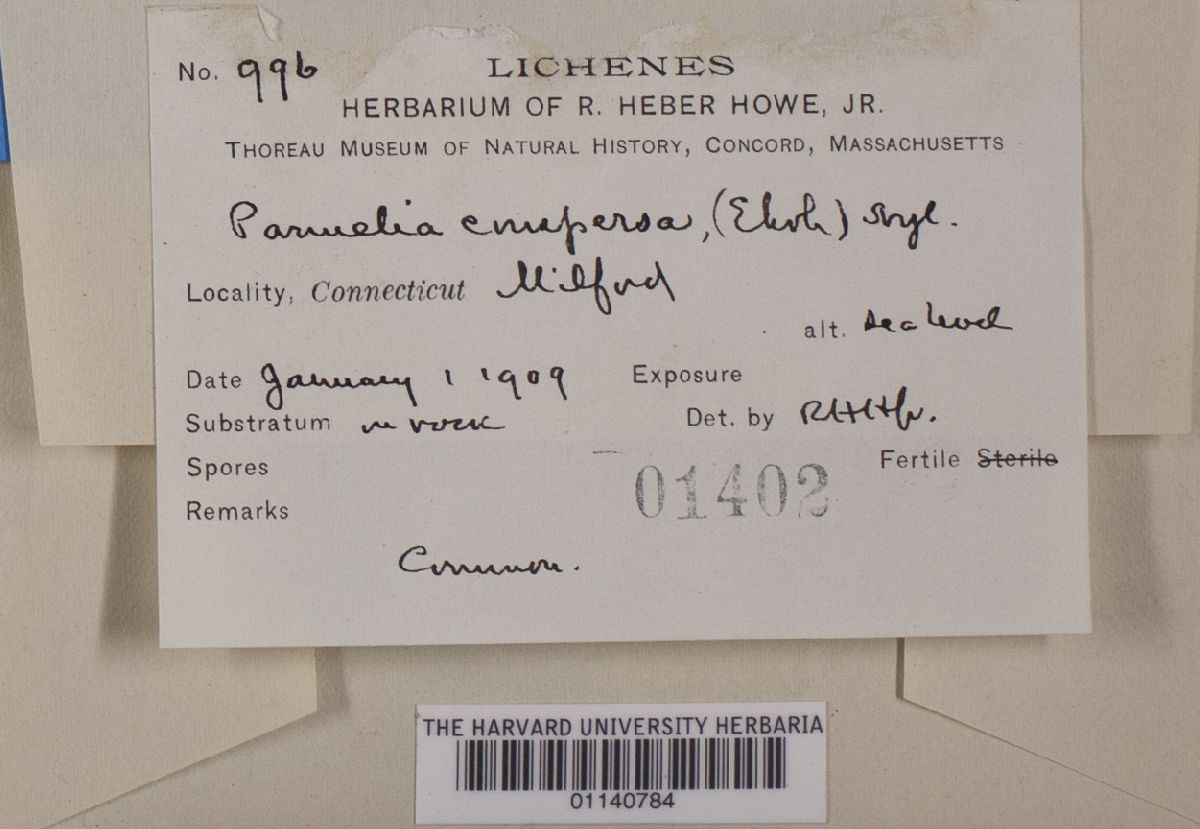 No. 996 LICHENES
HERBARIUM OF R. HEBER HOWE, JR.
THOREAU MUSEUM OF NATURAL HISTORY, CONCORD, MASSACHUSETTS
Parmelia conspersa, (Ehrh) Nyl.
Locality, Connecticut Milford
alt. sea level
Date January 1 1909 Exposure
Substratum on rock Det. by RHHJr.
Spores Fertile Sterile
Remarks 01402
Common.
THE HARVARD UNIVERSITY HERBARIA
01140784